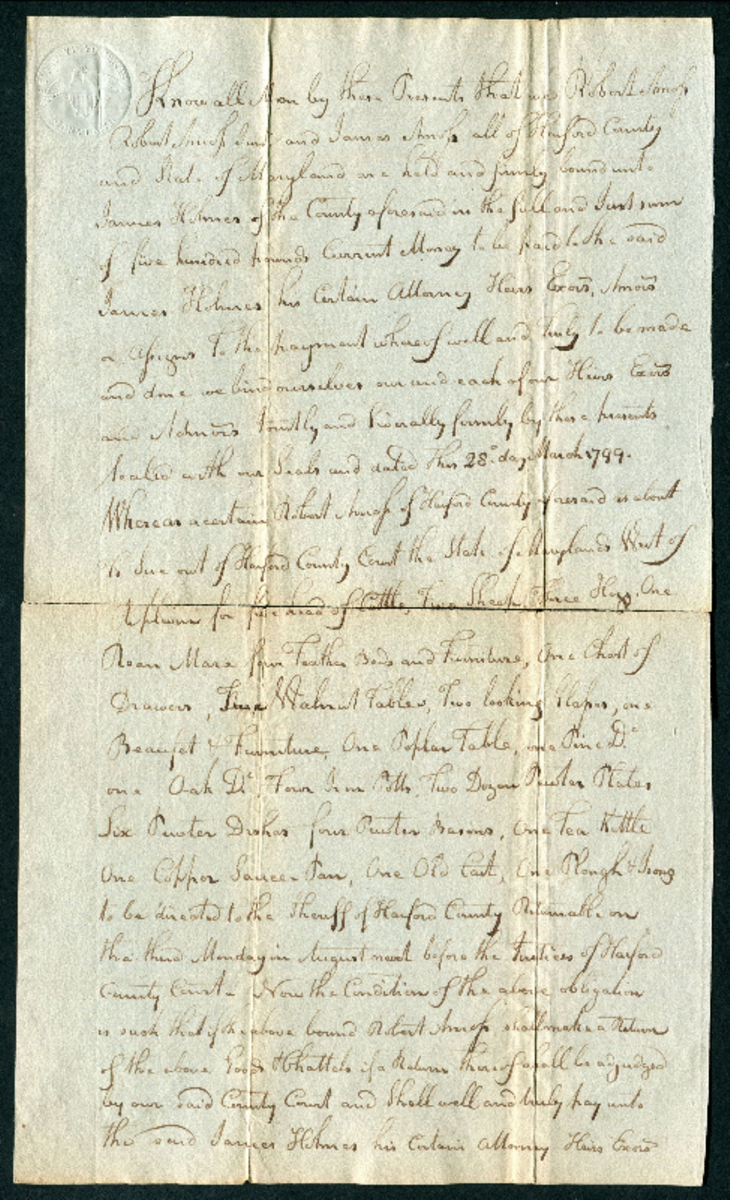 Know all Men by these Presents that we Robert Amoss
Robert Amoss Junr and James Amoss all of Harford County
and State of Maryland are held and firmly bound unto
James Holmes of the County aforesaid in the full and Just sum
of five hundred pounds Current Money to be paid to the said
James Holmes his Certain Attorney Heirs Exors, Amors
or Assigns to the payment whereof well and truly to be made
and done we bind ourselves our and each of our Heirs Exors
and Admors Jointly and Severally firmly by these presents
Sealed with our Seals and dated this 28th day March 1799.
Whereas a certain Robert Amoss of Harford County aforesaid is about
to Sue out of Harford County Court the State of Marylands Writ of
Replevin for five head of Cattle, Two Sheep, Three Hogs, One
Roan Mare four Feather Beds and Furniture, One Chest of
Drawers, Walnut Tables, Two looking Glasses, one
Beaufet & Furniture, One Poplar Table, one Pine Do
one Oak Do Four Iron Potts, Two Dozen Pewter Plates
Six Pewter Dishes four Pewter Basons, One Tea Kettle
One Copper Sauce Pan, One Old Cart, One Plough & Irons
to be directed to the Sheriff of Harford County Returnable on
the third Monday in August next before the Justices of Harford
County Court - Now the Condition of the above obligation
is such that if the above bound Robert Amoss shall make a Return
of the above Goods & Chattels if a Return thereof shall be adjudged
by our said County Court and Shall well and truly pay unto
the said James Holmes his Certain Attorney Heirs Exors